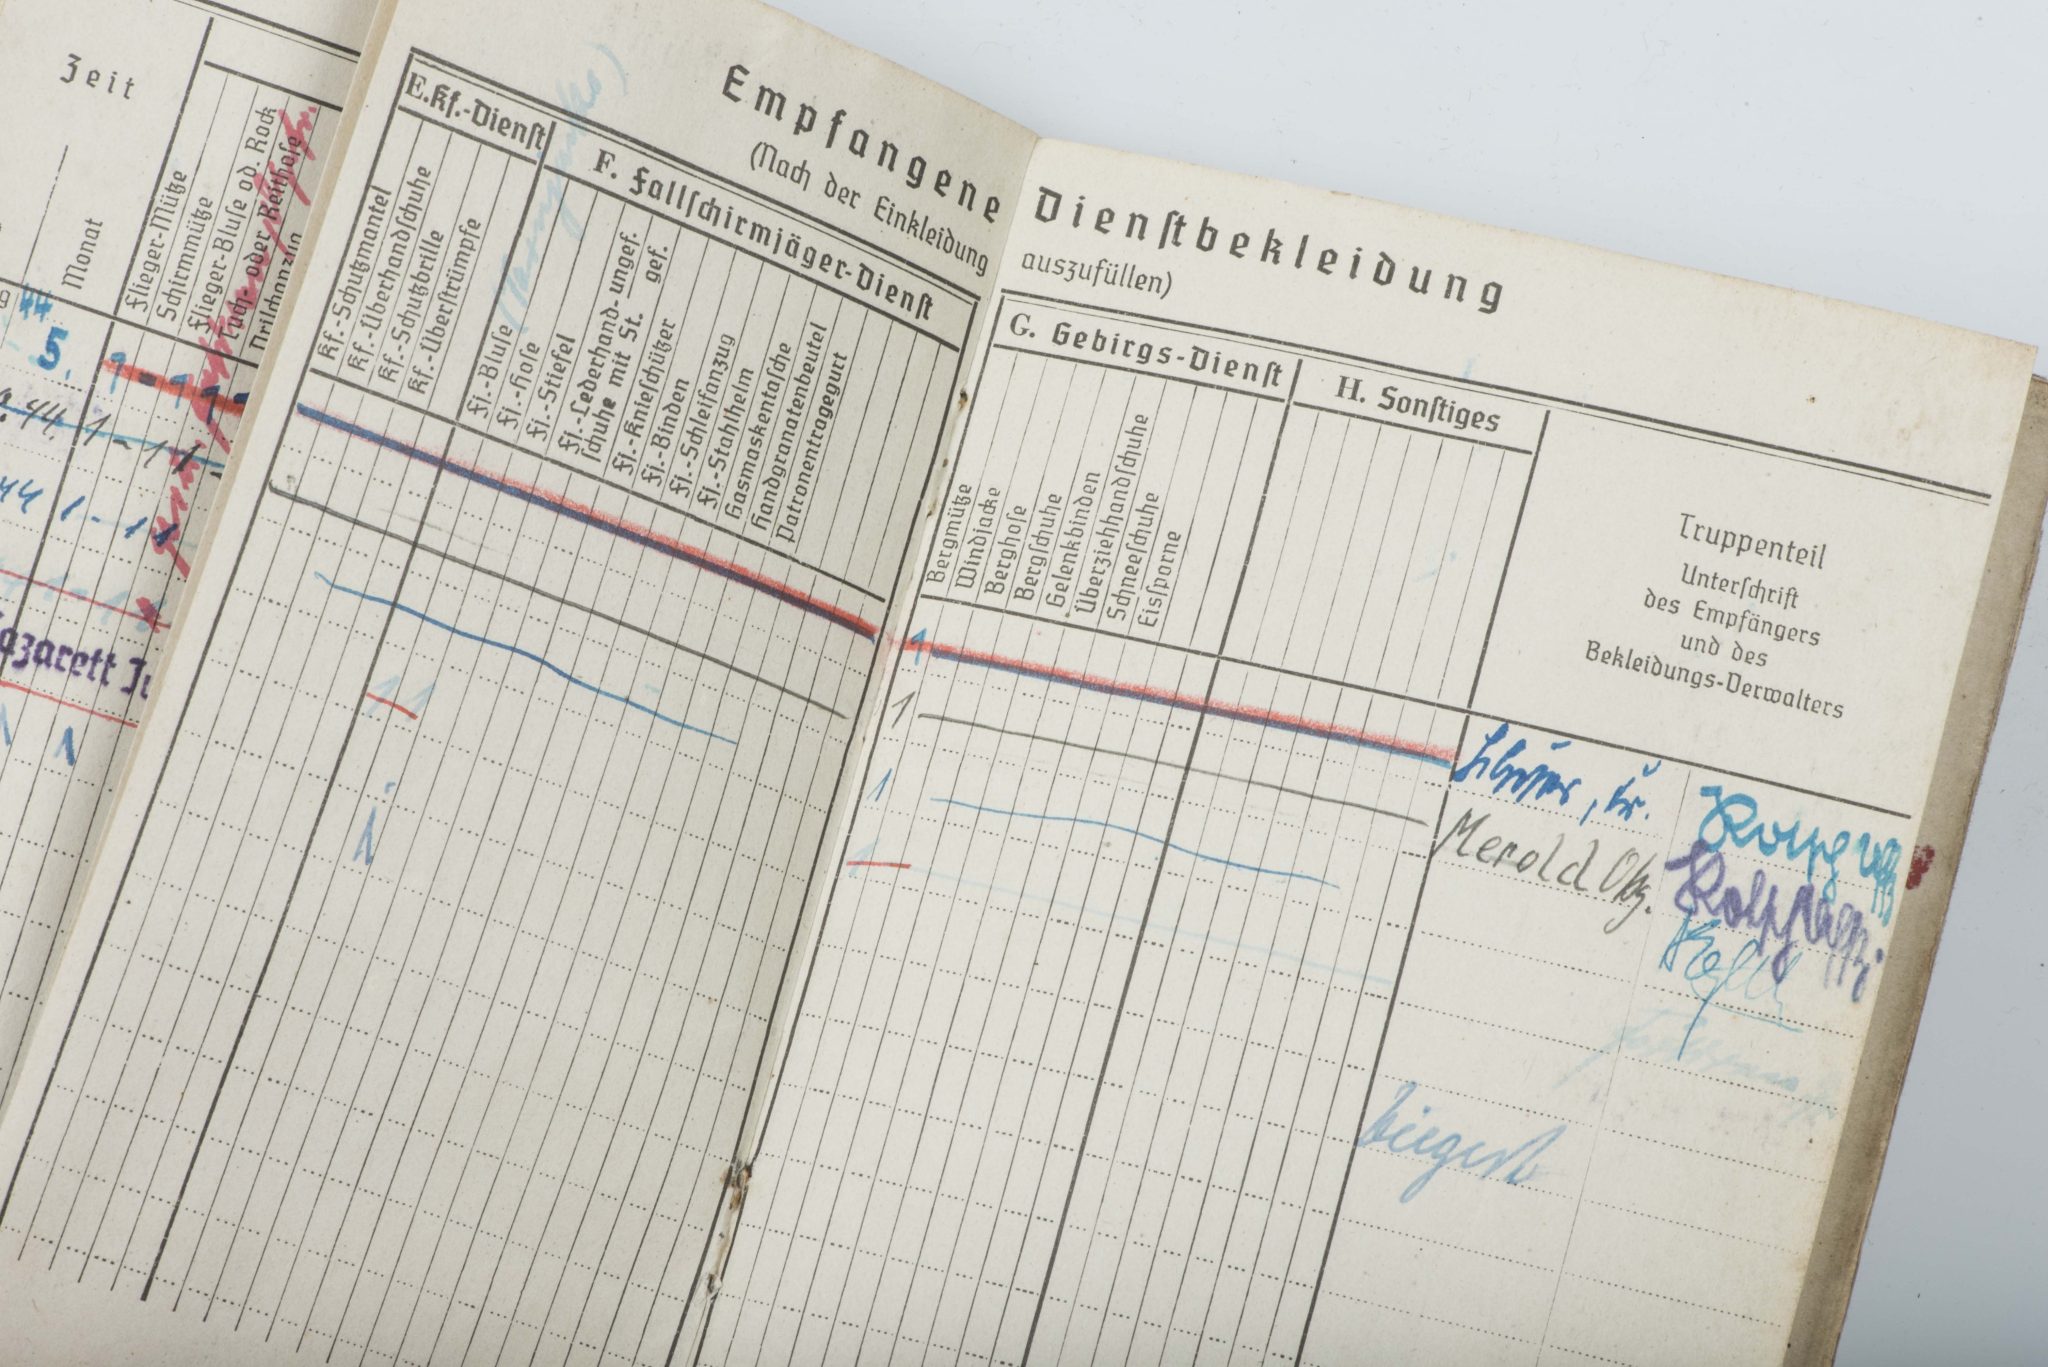 Zeit
Monat
Flieger-Mütze
Schirmmütze
Flieger-Bluse od. Rock
Tuch- oder Reithosen
Drilchanzug
44
5. 1 - 1 1 -
44 1 - 1 1 -
44 1 - 1 1
Lazarett
1 1
Empfangene Dienstbekleidung
(Nach der Einkleidung auszufüllen)
E. Kf.-Dienst
Kf.-Schutzmantel
Kf.-Überhandschuhe
Kf.-Schutzbrille
Kf.-Überstrümpfe
F. Fallschirmjäger-Dienst
Fj.-Bluse
Fj.-Hose
Fj.-Stiefel
Fj.-Lederhand- ungef.
schuhe mit St. gef.
Fj.-Knieschützer
Fj.-Binden
Fj.-Schleifanzug
Fj.-Stahlhelm
Gasmaskentasche
Handgranatenbeutel
Patronentragegurt
G. Gebirgs-Dienst
Bergmütze
Windjacke
Berghose
Bergschuhe
Gelenkbinden
Überziehhandschuhe
Schneeschuhe
Eissporne
H. Sonstiges
Truppenteil
Unterschrift
des Empfängers
und des
Bekleidungs-Verwalters
1
1 Merold Ofz.
1
1 1 1
1